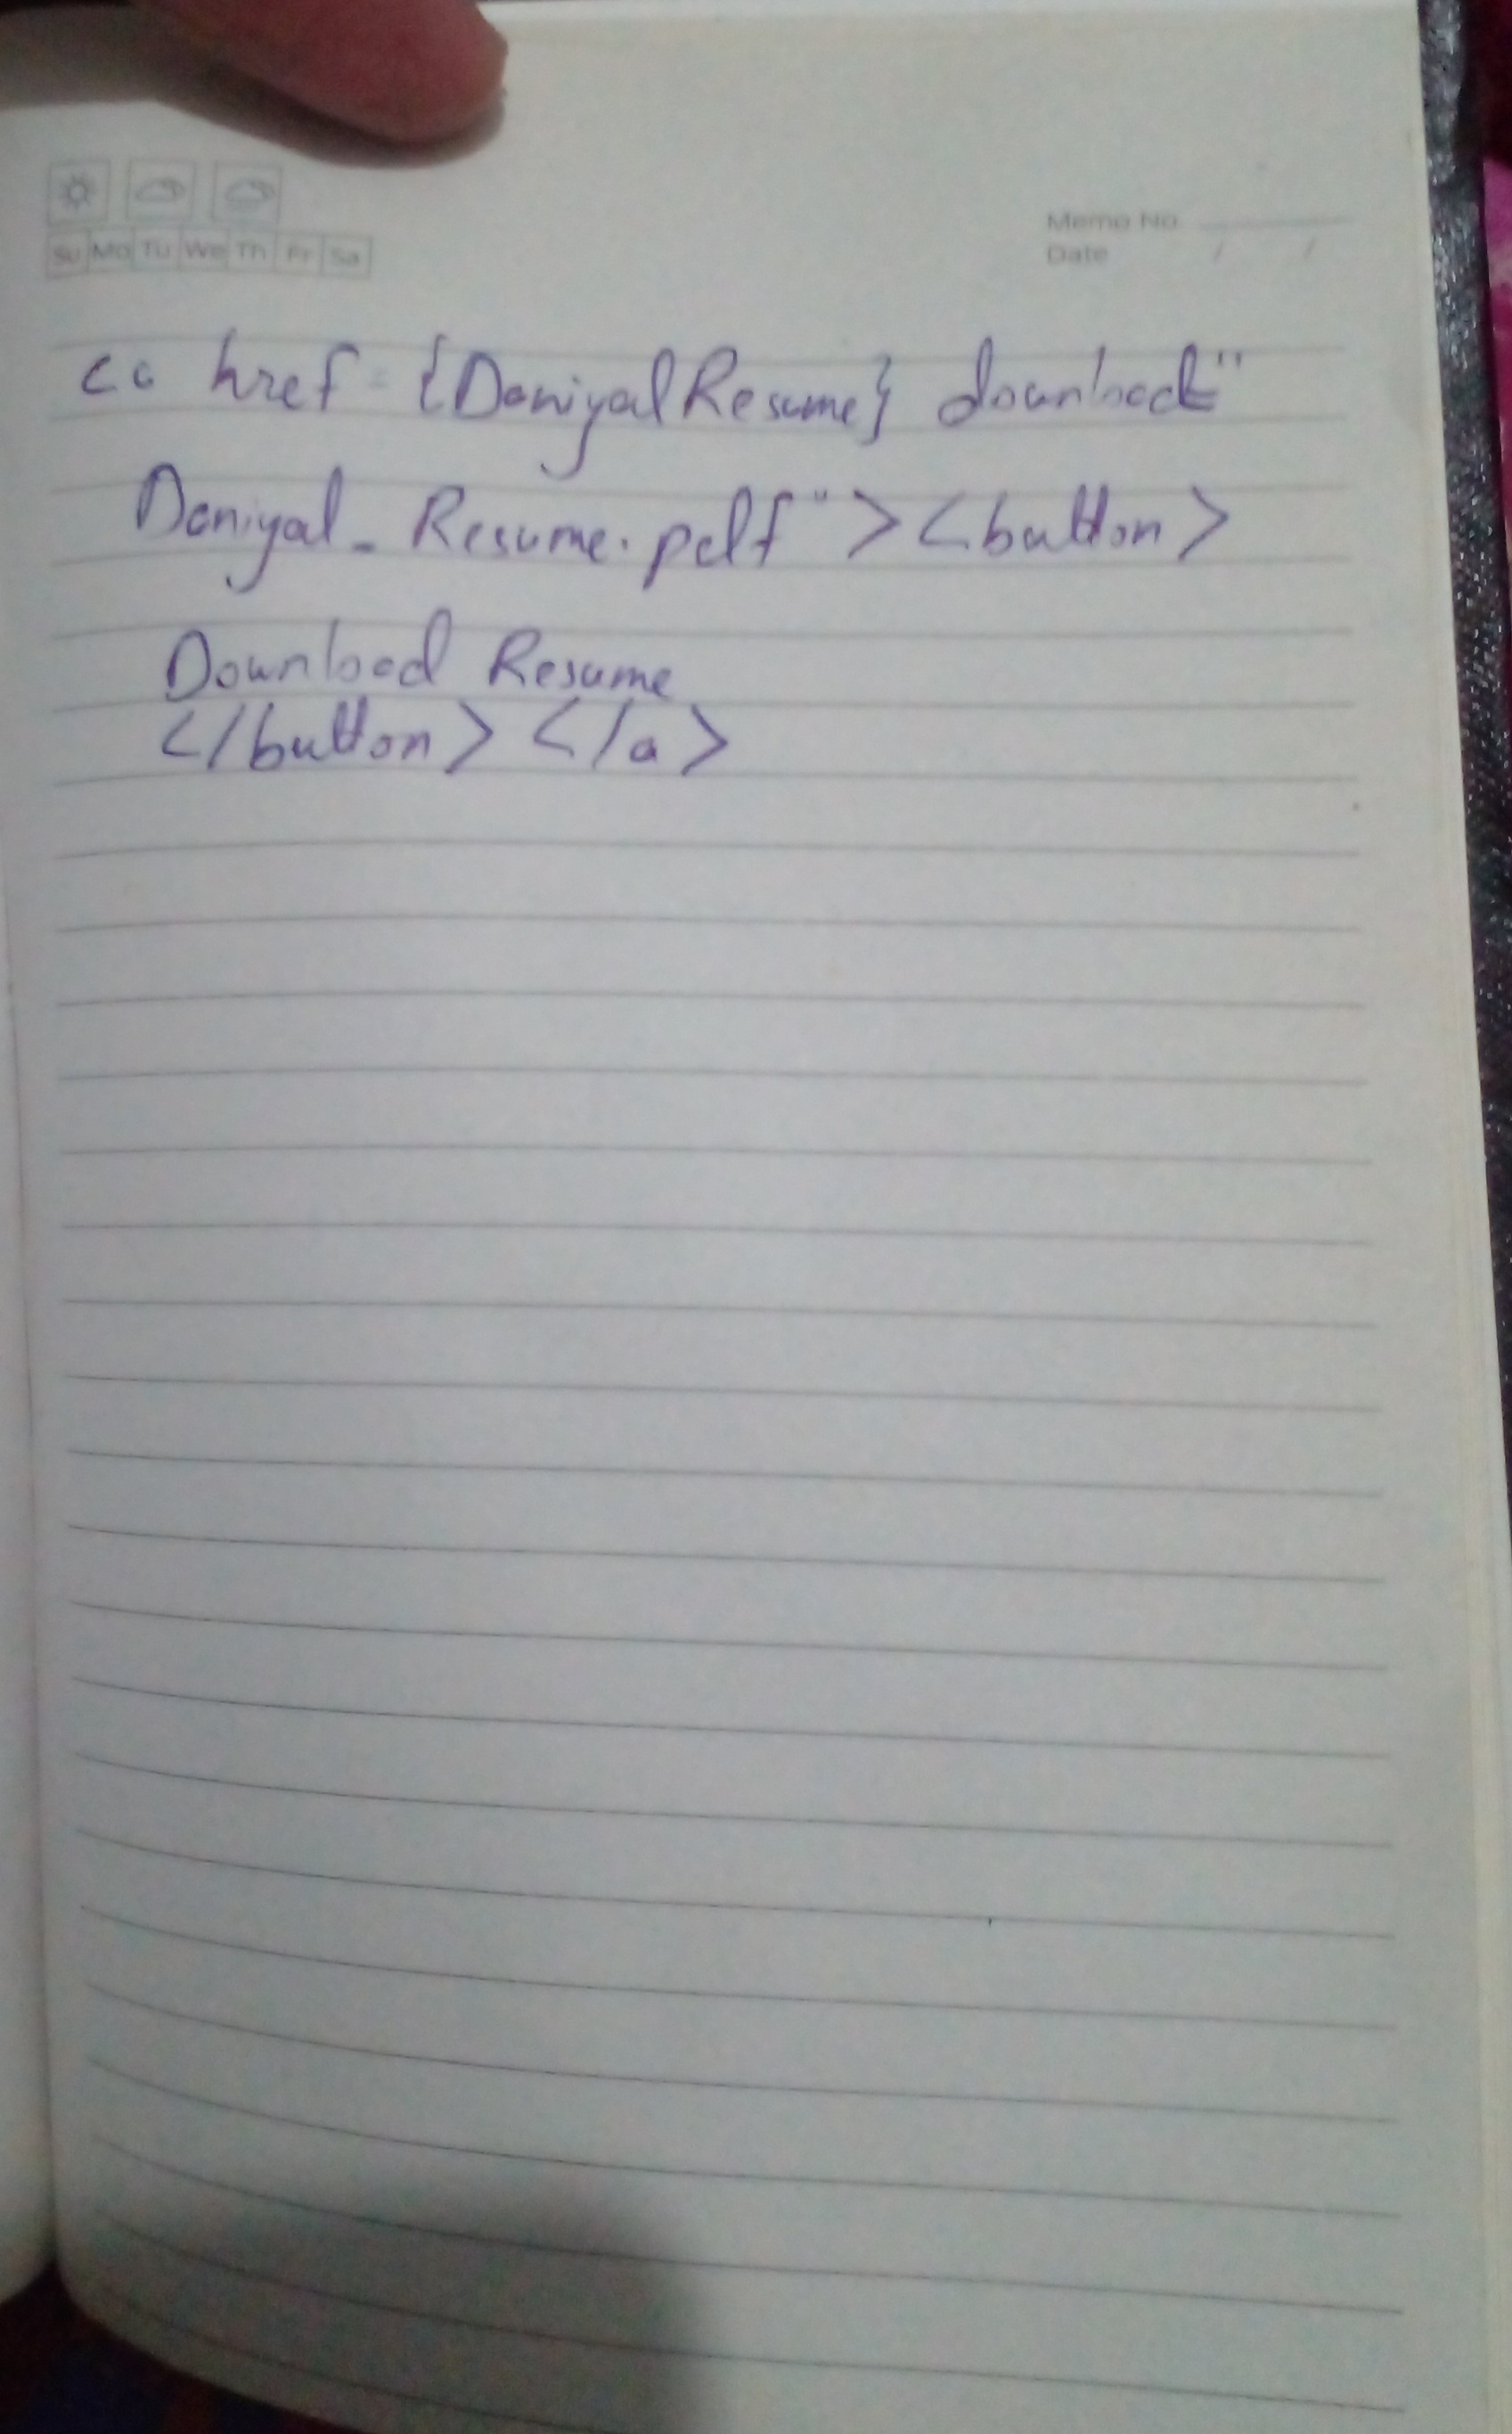 Su Mo Tu We Th Fr Sa
Memo No
Date / /
<a href={DaniyalResume} download="
Daniyal_Resume.pdf"><button>
Download Resume
</button></a>